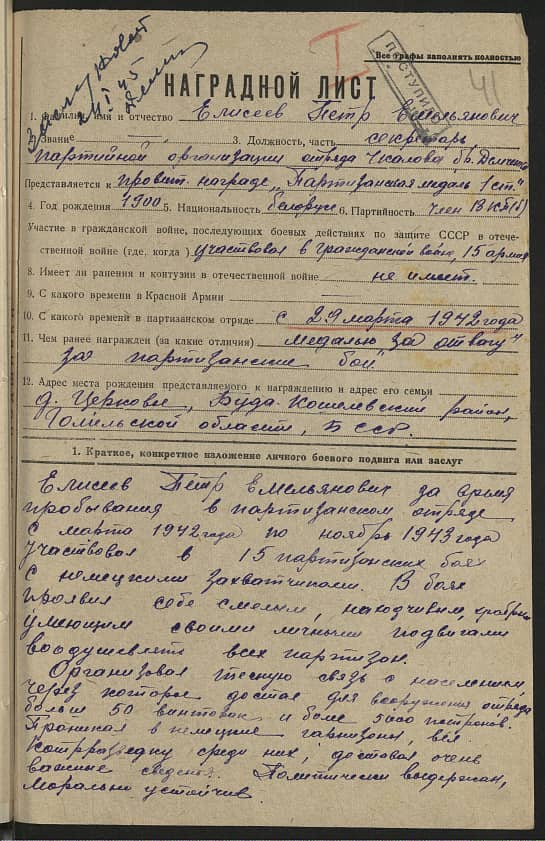 24/I 45
I
Все графы заполнять полностью
ПОСТУПИЛ
41
НАГРАДНОЙ ЛИСТ
1. Фамилия, имя и отчество Елисеев Петр Емельянович
2. Звание — 3. Должность, часть секретарь
партийной организации отряда Чкалова бр.
Представляется к правит. награде „Партизанская медаль 1 ст."
4. Год рождения 1900 5. Национальность белорус 6. Партийность член ВКП(б)
Участие в гражданской войне, последующих боевых действиях по защите СССР в отече-
ственной войне (где, когда) участвовал в гражданской войне, 15 армия
8. Имеет ли ранения и контузии в отечественной войне не имеет.
9. С какого времени в Красной Армии —
10. С какого времени в партизанском отряде с 29 марта 1942 года
11. Чем ранее награжден (за какие отличия) медалью за отвагу"
за партизанские бои.
12. Адрес места рождения представляемого к награждению и адрес его семьи
д. Церковье, Буда-Кошелевский район,
Гомельской области, БССР.
1. Краткое, конкретное изложение личного боевого подвига или заслуг
Елисеев Петр Емельянович за время
пробывания в партизанском отряде
с марта 1942 года по ноябрь 1943 года
участвовал в 15 партизанских боях
с немецкими захватчиками. В боях
проявил себе смелым, находчивым, храбрым
умеющим своими личными подвигами
воодушевлять всех партизан.
Организовал тесную связь с населением,
через которое достал для вооружения отряда
больше 50 винтовок и более 5000 патронов.
Проникал в немецкие гарнизоны, вел
контрразведку среди них, доставал очень
важные сведения. Политически выдержан,
Морально устойчив.